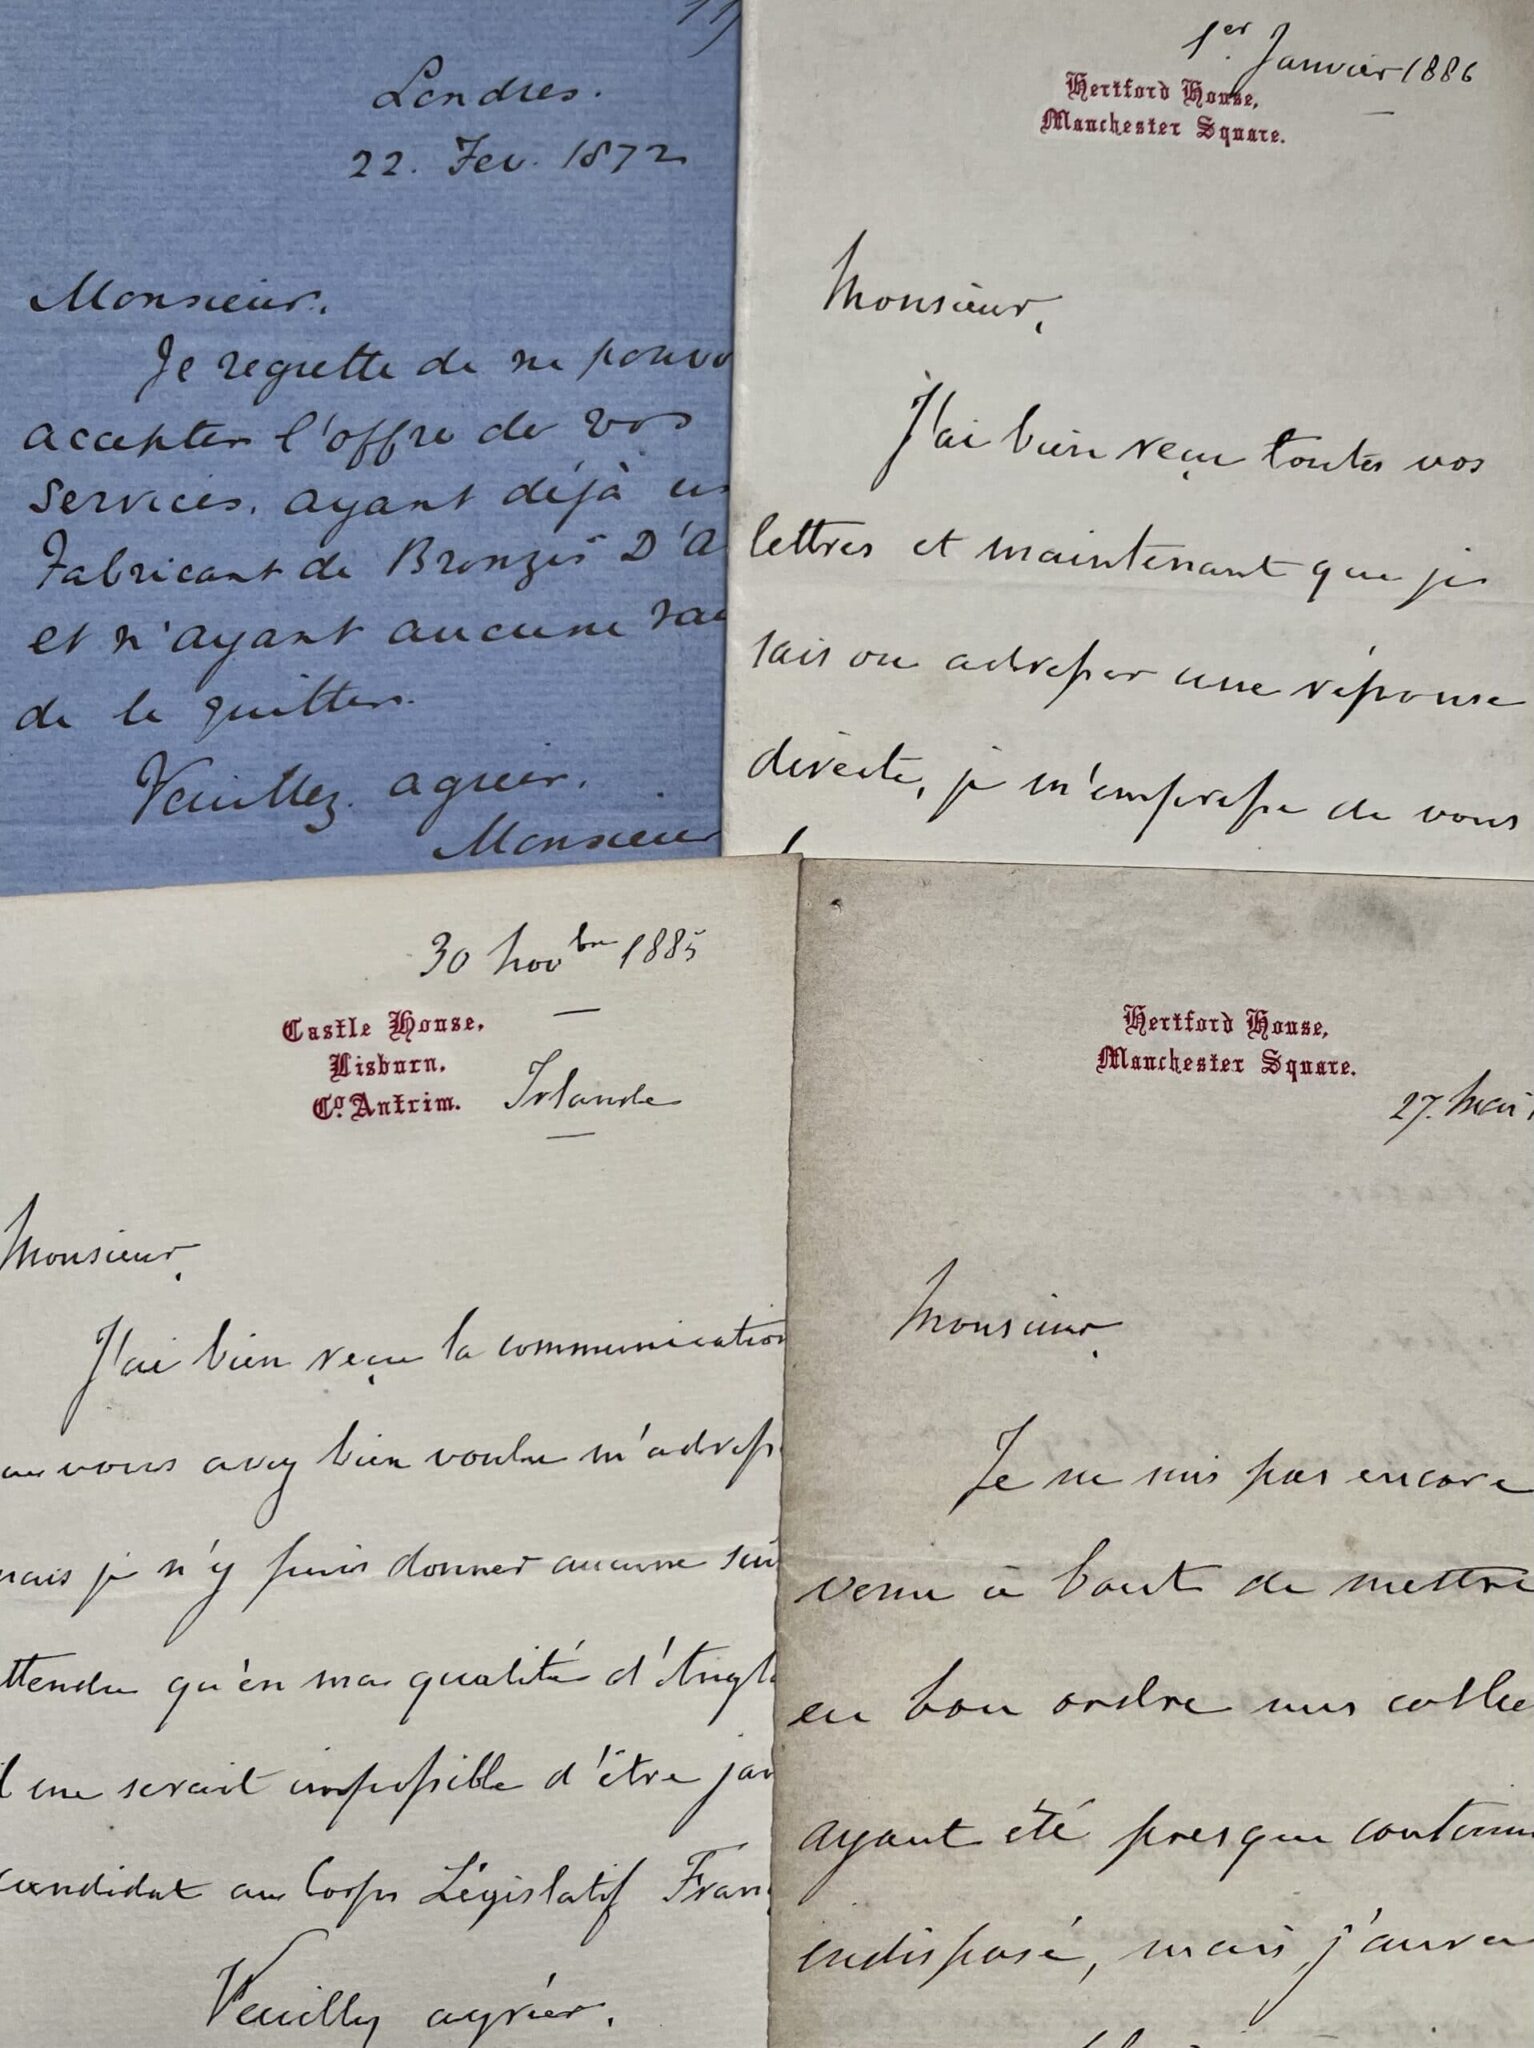 Londres.
22. Fev. 1872
Monsieur.
Je regrette de ne pouvo
accepter l'offre de vos
services, ayant déjà un
Fabricant de Bronzes D'A
et n'ayant aucune rai
de le quitter.
Veuillez agréer.
Monsieur
1er Janvier 1886
Hertford House,
Manchester Square.
Monsieur,
J'ai bien reçu toutes vos
lettres et maintenant que je
sais ou adresser une réponse
directe, je m'empresse de vous
30 Novbre 1885
Castle House,
Lisburn,
Co. Antrim. Irlande
Monsieur,
J'ai bien reçu la communication
que vous avez bien voulu m'adress
mais je n'y puis donner aucune sui
ttendu qu'en ma qualité d'Angl
il me serait impossible d'être jam
candidat au Corps Législatif Franç
Veuillez agréer.
Hertford House,
Manchester Square.
27. Mai 1
Monsieur,
Je ne suis pas encore
venu à bout de mettre
en bon ordre mes colle
ayant été presque continu
indisposé, mais j'aurai